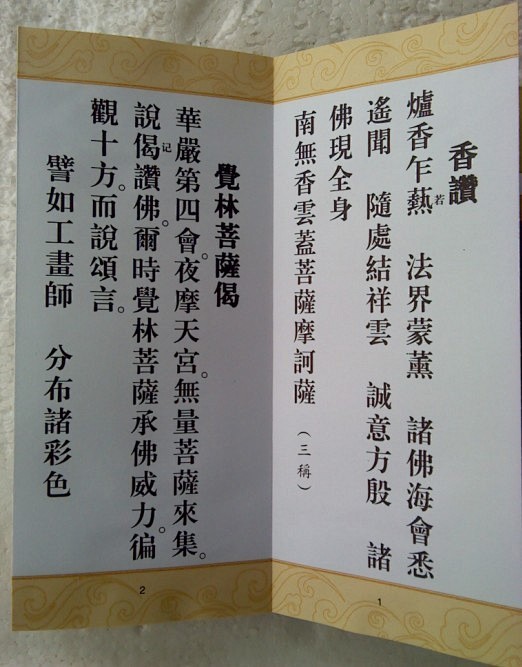 香讚
爐香乍爇 法界蒙薰 諸佛海會悉
若
遙聞 隨處結祥雲 誠意方殷 諸
佛現全身
南無香雲蓋菩薩摩訶薩 (三稱)
1
覺林菩薩偈
華嚴第四會。夜摩天宮。無量菩薩來集。
說偈讚佛。爾時覺林菩薩承佛威力。徧
记
觀十方。而說頌言。
譬如工畫師 分布諸彩色
2